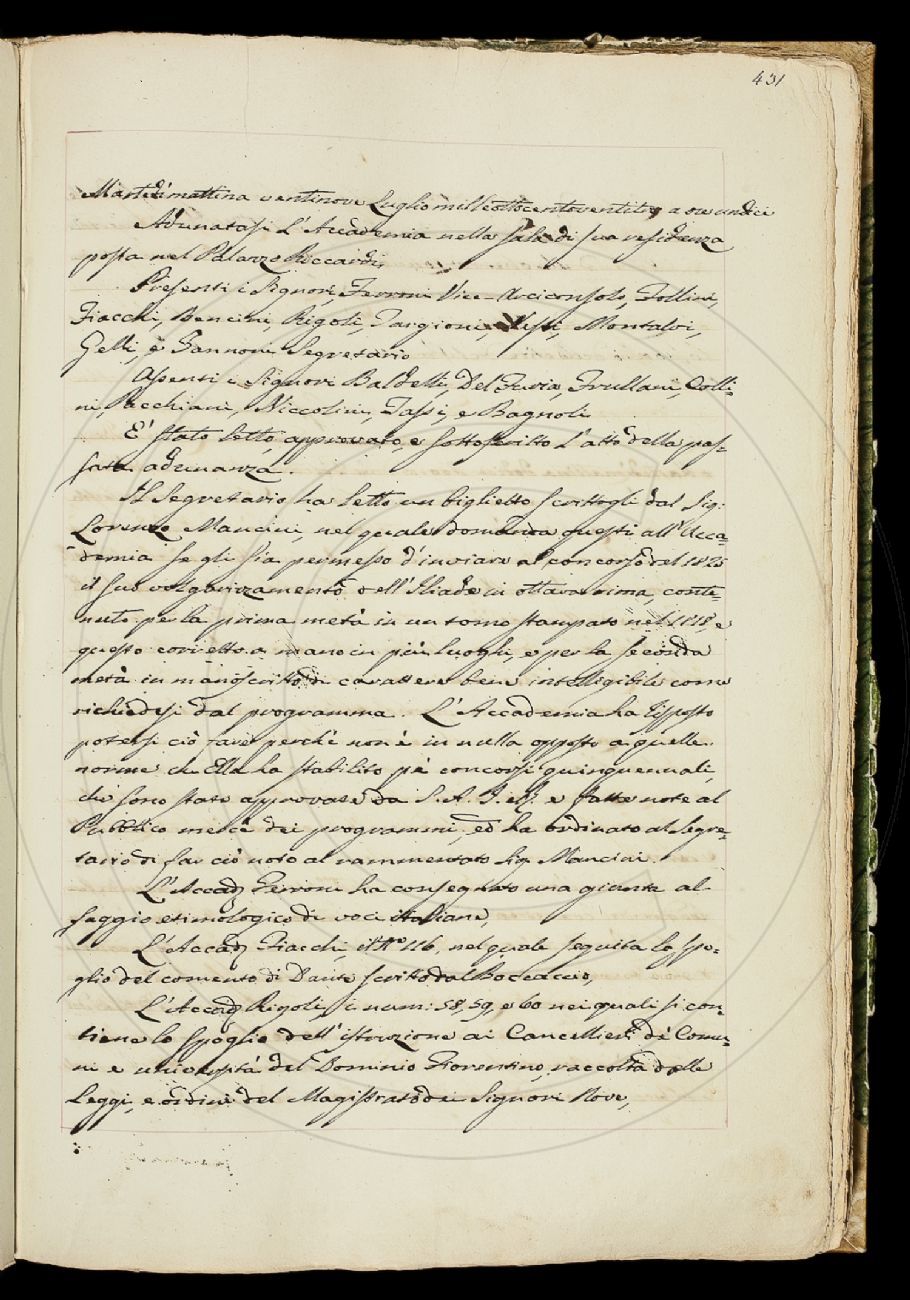 431
Martedì mattina ventinove Luglio mille ottocentoventitre a ore undici
Adunatasi L'Accademia nella sala di sua residenza
posta nel Palazzo Riccardi,
Presenti i Signori, Ferroni Vice-Arciconsolo, Follini,
Fiacchi, Bencini, Rigoli, Targioni, Montalvi,
Gelli, e Zannoni Segretario
Assenti i Signori Baldelli, Del Furia, Frullani, Colli-
ni, Pacchiani, Niccolini, Tassi, e Bagnoli
E' stato letto, approvato, e sottoscritto L'atto della pas-
sata adunanza.
Il Segretario ha letto un biglietto scrittogli dal Sig:
Lorenzo Mancini, nel quale domanda questi all'Acca-
demia se gli sia permesso d'inviare al concorso del 1825
il suo volgarizzamento dell'Iliade in ottava rima, conte-
nuto per la prima metà in un tomo stampato nel 1818, e
questo corretto a mano in più luoghi, e per la seconda
metà in manoscritto di carattere bene intellegibile come
richiedesi dal programma. L'Accademia ha risposto
potersi ciò fare perchè non è in nulla opposto a quelle
norme che Ella ha stabilito pe' concorsi quinquennali,
che sono state approvate da S. A. I. e R. e fatte note al
Pubblico mercè dei programmi, ed ha ordinato al Segre-
tario di far ciò noto al rammentato Sig. Mancini.
L'Accad. Ferroni ha consegnato una giunta al
saggio etimologico di voci italiane,
L'Accad. Fiacchi, il N.° 116, nel quale seguita lo spo-
glio del comento di Dante scritto dal Boccaccio,
L'Accad. Rigoli, i num: 58, 59, e 60 nei quali si con-
tiene lo spoglio dell'istruzione ai Cancellieri de' Comu-
ni e università del Dominio Fiorentino, raccolta dalle
Leggi, e ordini del Magistrato dei Signori Nove,